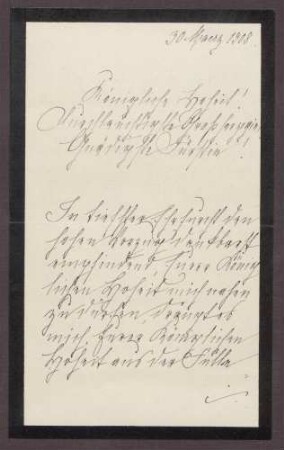 30. März 1918.
Königliche Hoheit!
Durchlauchtigste Großherzogin
Gnädigste Fürstin!
In tiefster Ehrfurcht den
hohen Vorzug dankbarst
empfindend, Eurer König-
lichen Hoheit mich nahen
zu dürfen, drängt es
mich, Eurer Königlichen
Hoheit aus der Fülle